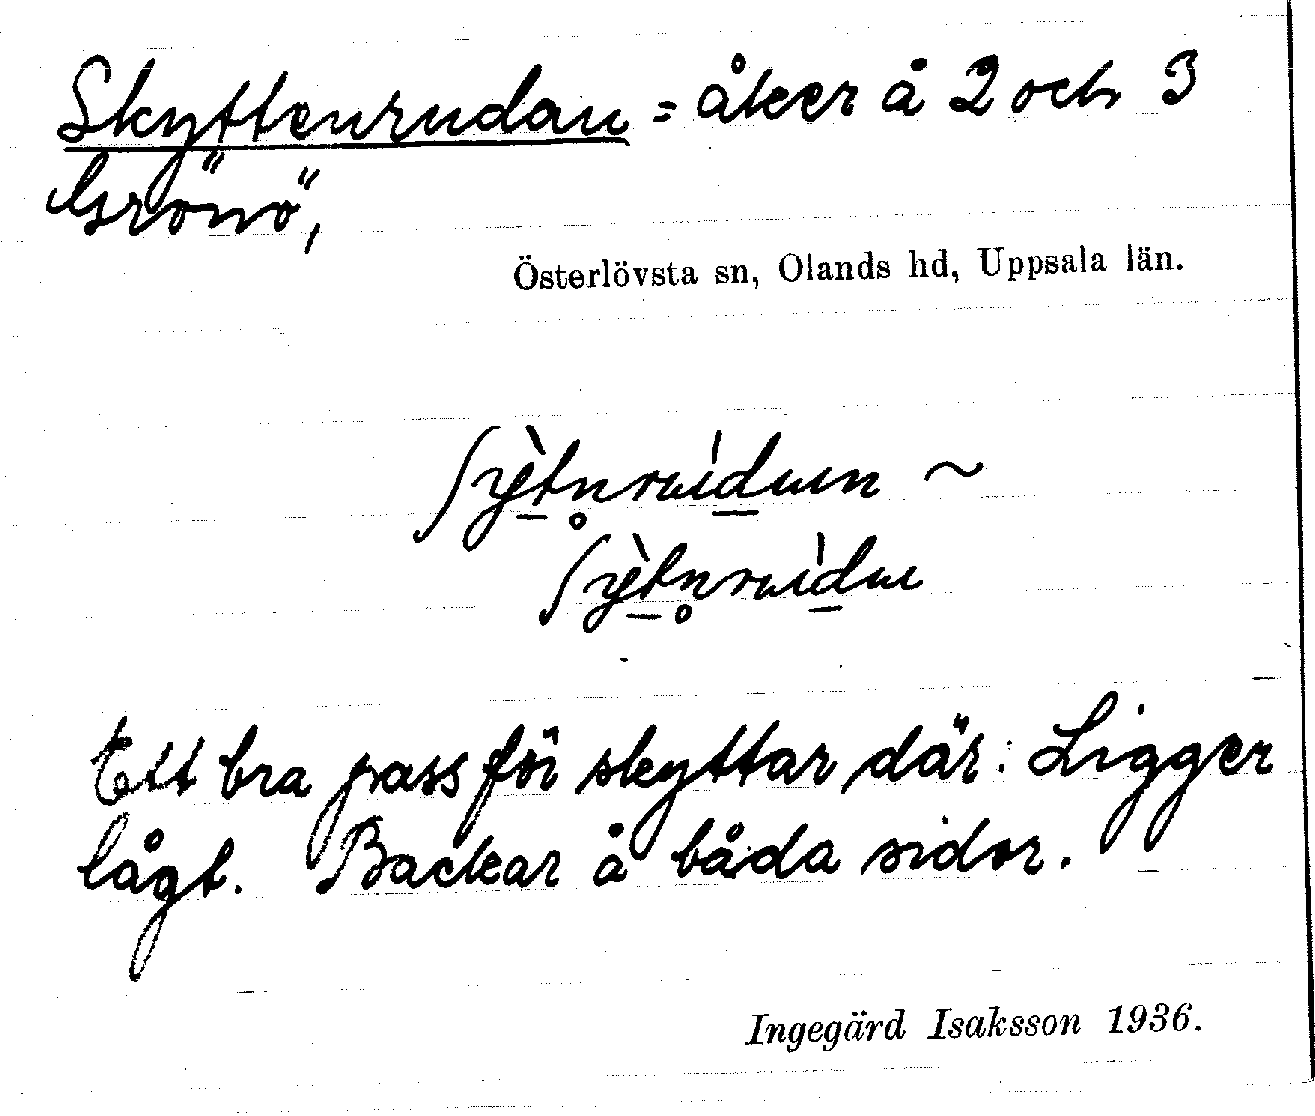 Skyttenrudan = åker å 2 och 3
Grönö,
Österlövsta sn, Olands hd, Uppsala län.
Ett bra pass för skyttar där. Ligger
lågt. Backar å båda sidor.
Ingegärd Isaksson 1936.